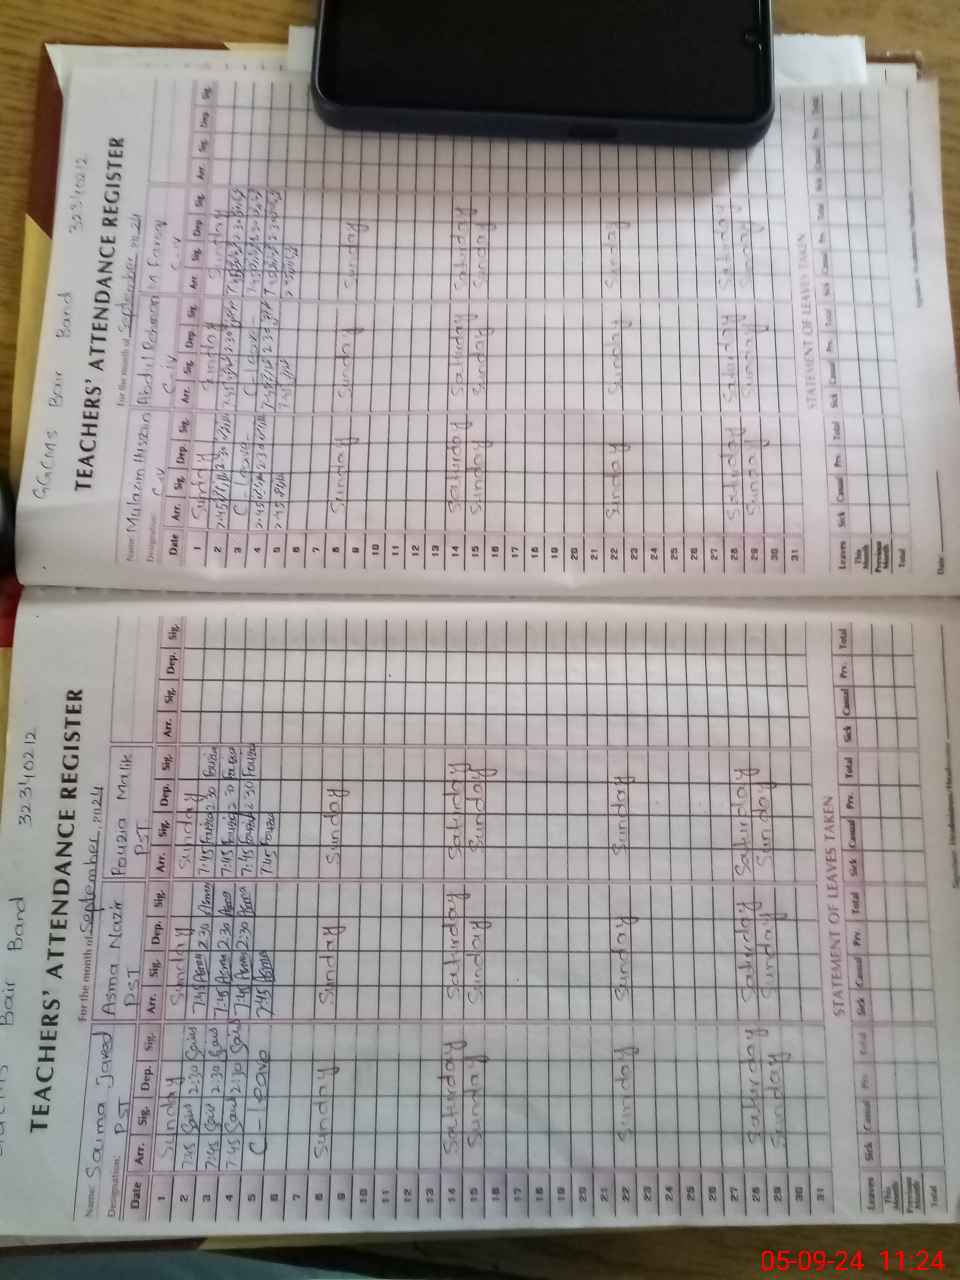 Bair Band 32340212
TEACHERS' ATTENDANCE REGISTER
For the month of September, 2024
Name: Saima Javed Asma Nazir Fouzia Malik
Designation: PST PST PST
Date Arr. Sig. Dep. Sig. Arr. Sig. Dep. Sig. Arr. Sig. Dep. Sig. Arr. Sig. Dep. Sig.
1 Sunday Sunday Sunday
2 7:45 2:30 7:45 Asma 2:30 Asma 7:45 Fouzia 2:30 Fouzia
3 7:45 2:30 7:45 Asma 2:30 Asma 7:45 Fouzia 2:30 Fouzia
4 7:45 2:30 7:45 Asma 2:30 Asma 7:45 Fouzia 2:30 Fouzia
5 C-leave 7:45 Asma 7:45 Fouzia
6
7
8 Sunday Sunday Sunday
9
10
11
12
13
14 Saturday Saturday Saturday
15 Sunday Sunday Sunday
16
17
18
19
20
21
22 Sunday Sunday Sunday
23
24
25
26
27
28 Saturday Saturday Saturday
29 Sunday Sunday Sunday
30
31
STATEMENT OF LEAVES TAKEN
Leaves Sick Casual Prv. Total Sick Casual Prv. Total Sick Casual Prv. Total Sick Casual Prv. Total
This Month
Previous Month
Total
GGCMS Bair Band 32340212
TEACHERS' ATTENDANCE REGISTER
For the month of September, 2024
Name: Mulazim Hussain Abdul Rehman M Farooq
Designation: C-iv C-iv C-iv
Date Arr. Sig. Dep. Sig. Arr. Sig. Dep. Sig. Arr. Sig. Dep. Sig. Arr. Sig. Dep. Sig.
1 Sunday Sunday Sunday
2 7:45 2:30 7:45 2:30 7:45 2:30
3 C-leave 7:45 2:30
4 7:45 2:30 7:45 2:30 7:45 2:30
5 7:45 7:45 7:45
6
7
8 Sunday Sunday Sunday
9
10
11
12
13
14 Saturday Saturday Saturday
15 Sunday Sunday Sunday
16
17
18
19
20
21
22 Sunday Sunday Sunday
23
24
25
26
27
28 Saturday Saturday Saturday
29 Sunday Sunday Sunday
30
31
STATEMENT OF LEAVES TAKEN
Leaves Sick Casual Prv. Total Sick Casual Prv. Total Sick Casual Prv. Total Sick Casual Prv. Total
This Month
Previous Month
Total
Date
05-09-24 11:24